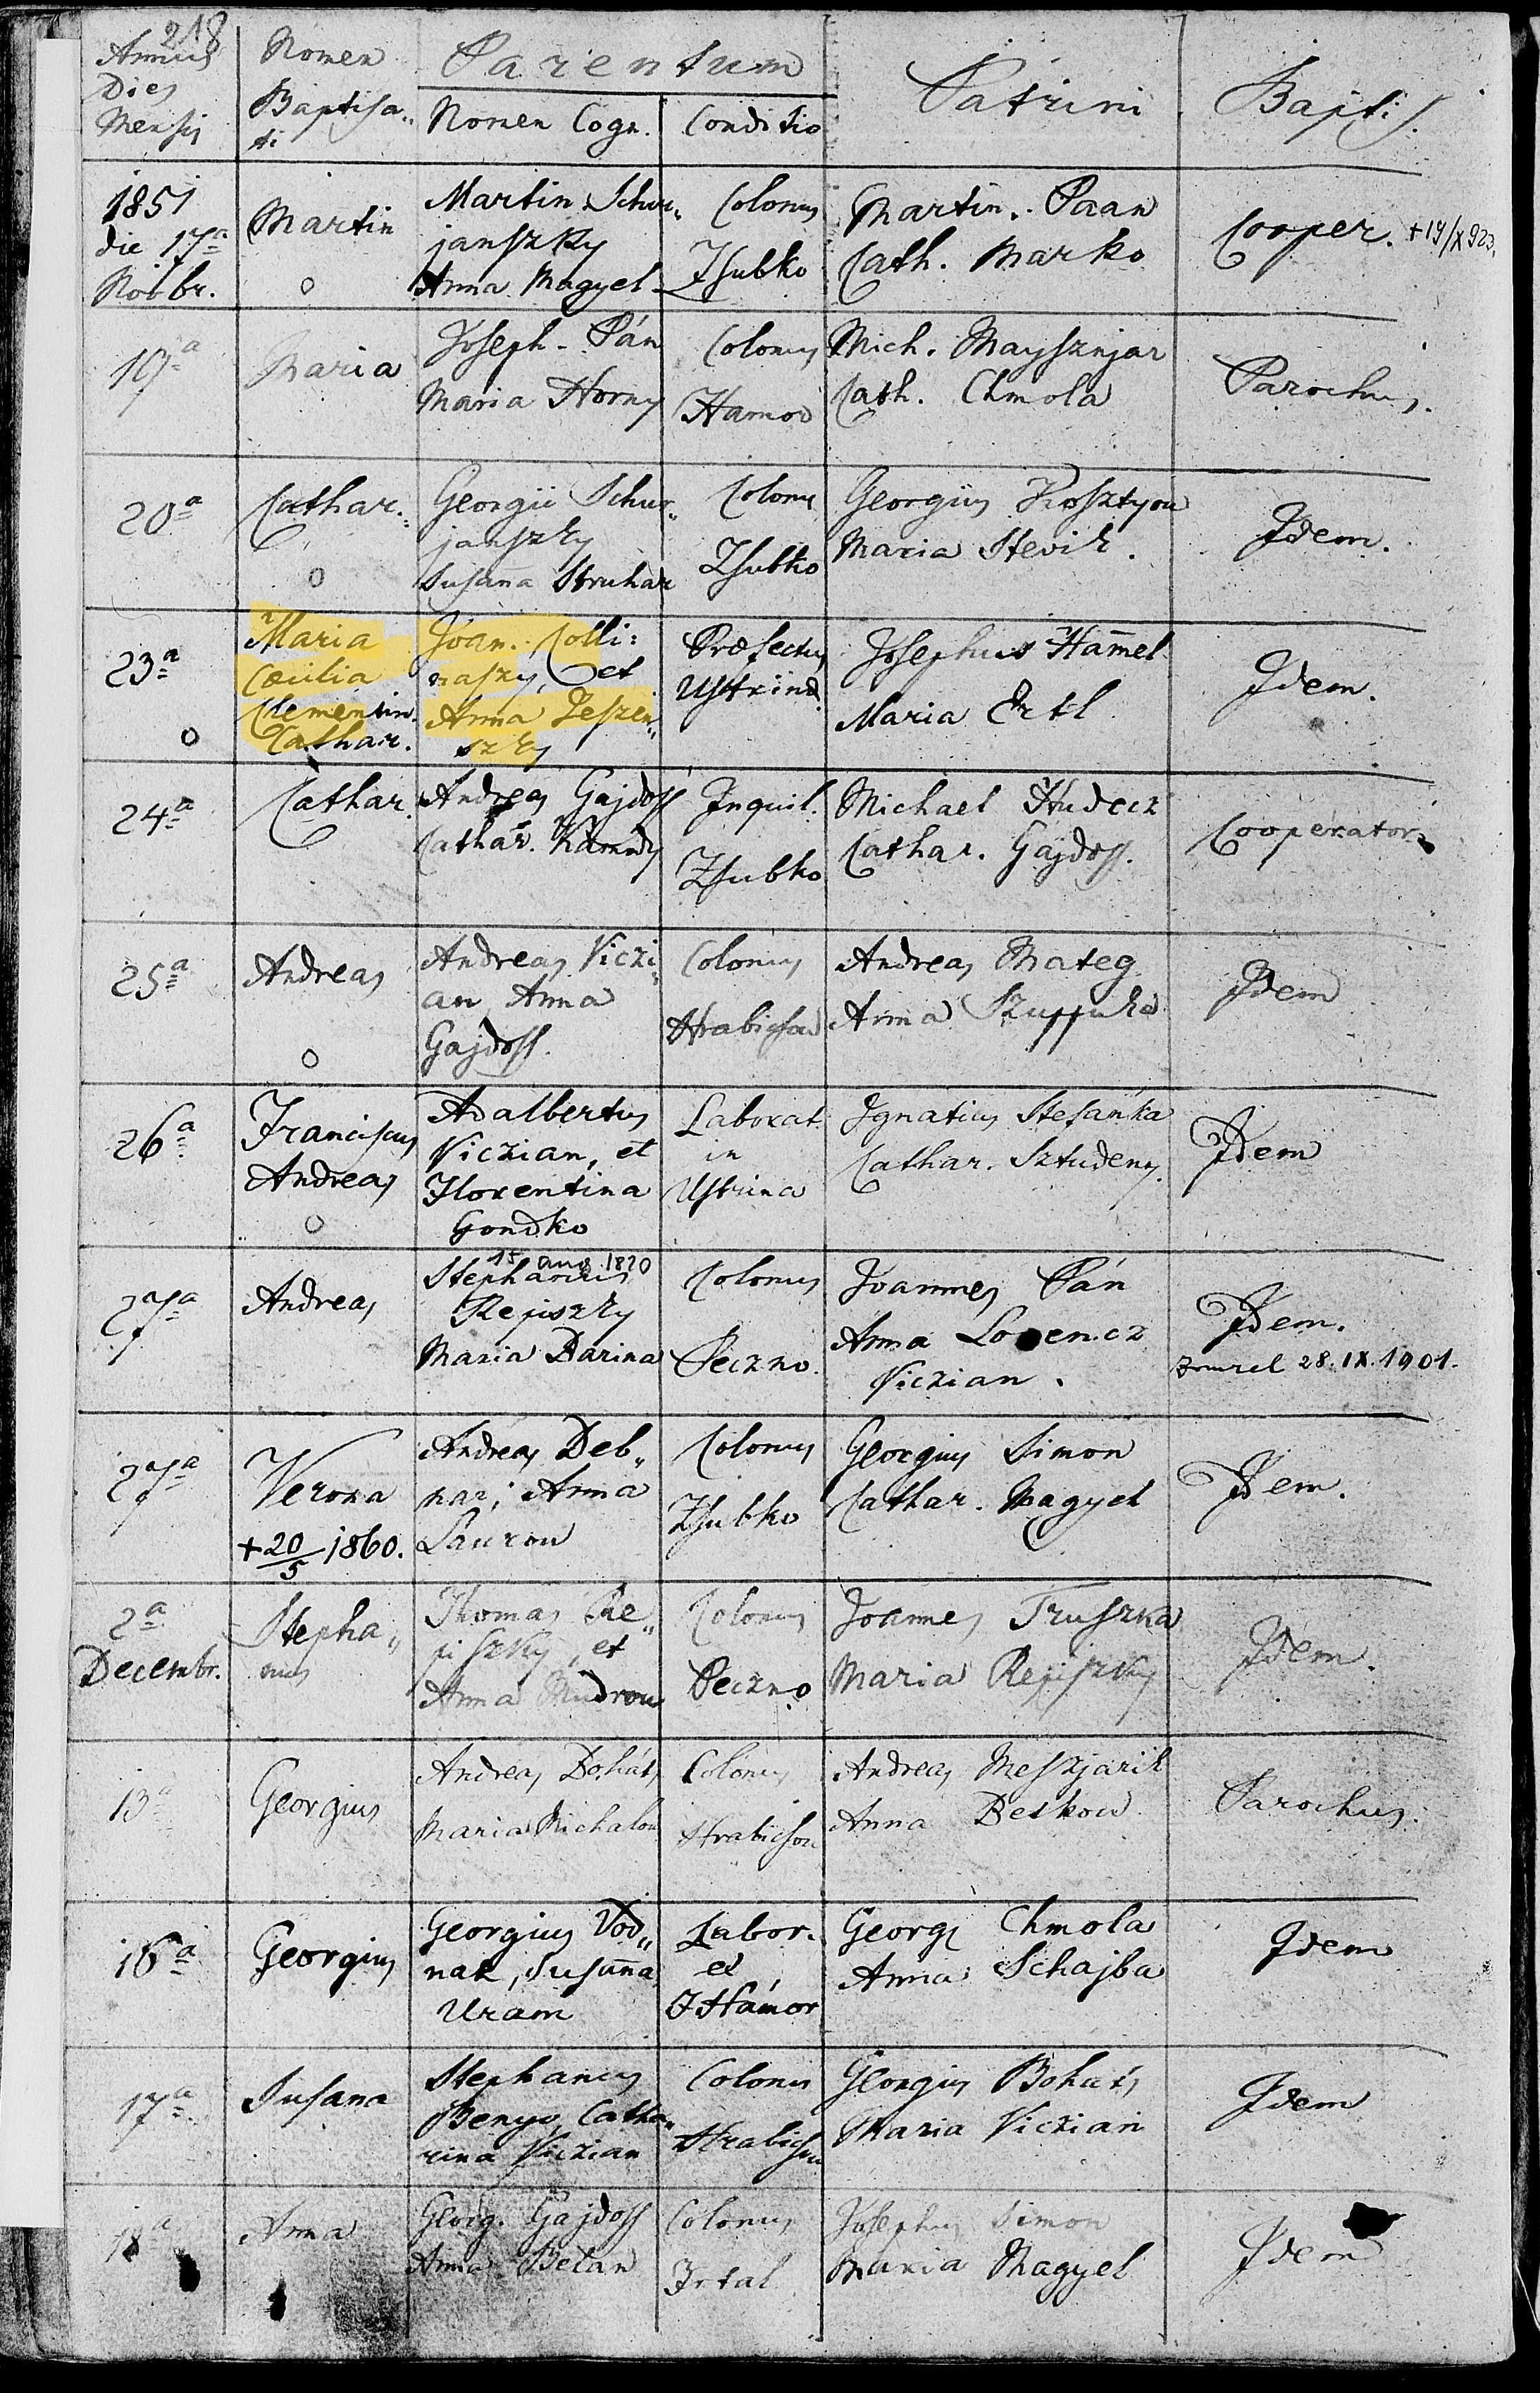 218
Annus Dies Mensis
Nomen Baptisa„ti
Parentum
Nomen Cogn.
Conditio
Patrini
Baptis.
1851 die 17a Novbr.
Martin
o
Martin Schur„
janszky
Anna Magyel
Colonus
Zsubko
Martin. Paan
Cath. Marko
Cooper. +19/X 923.
19a
Maria
Joseph. Pán
Maria Horny
Colonus
Hamor
Mich. Maysznjar
Cath. Chmola
Parochus.
20a
Cathar.
o
Georgii Schur„
janszky
Susana Struhar
Colonu
Zsubko
Georgius Krosztyou
Maria Stevik.
Idem.
23a
o
Maria
Cæcilia
Clementin.
Cathar.
Joan. Colli:
naszy, et
Anna Jeszen„
szky
Præfectus
Ustrinæ
Josephus Ham̄el
Maria Ertl
Idem.
24a
Cathar.
Andreas Gajdoss
Cathar.
Inquil.
Zsubko
Michael Hudecz
Cathar. Gajdoss.
Cooperator.
25a
Andreas
o
Andreas Viczi„
an Anna
Gajdoss.
Colonus
Hrabicsou
Andreas Mateg
Anna Szuppuka
Idem
26a
Franciscus
Andreas
o
Adalbertus
Viczian, et
Florentina
Gondko
Laborat.
in
Ustrina
Ignatius Stefanka
Cathar. Sztudeny.
Idem
27a
Andreas
15 aug. 1820
Stephanus
Repiszky
Maria Darina
Colonus
Peczno.
Joannes Pán
Anna Lorencz
Viczian.
Idem.
zomrel 28.IX.1901.
27a
Verona
+20/5 1860.
Andreas Deb„
nar; Anna
Lauron
Colonus
Zsubko
Georgius Simon
Cathar. Magyel
Idem.
2a
Decembr.
Stepha„
nus
Thomas Re„
piszky, et
Anna Mudrou
Colonus
Peczno
Joannes Truszka
Maria Repiszky
Idem.
13a
Georgius
Andreas Bohús
Maria Michalou
Colonus
Hrabicsou
Andreas Meszjarik
Anna Beskow
Parochus.
16a
Georgius
Georgius Vod„
nak, Susan̄a
Uram
Labor.
ex
Hámor
Georg Chmola
Anna Schajba
Idem
17a
Susana
Stephanus
Benyo, Catha„
rina Viczian
Colonus
Hrabicsou
Georgius Bohus
Maria Viczian
Idem
18a
Anna
Georg. Gajdoss
Anna Belan
Colonus
Irtal
Josephus Simon
Maria Magyel
Idem